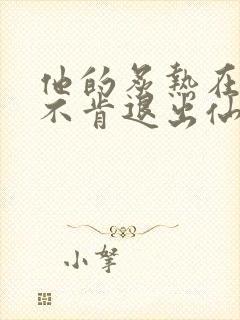 他的炙热在
不肯退出仙
小孥